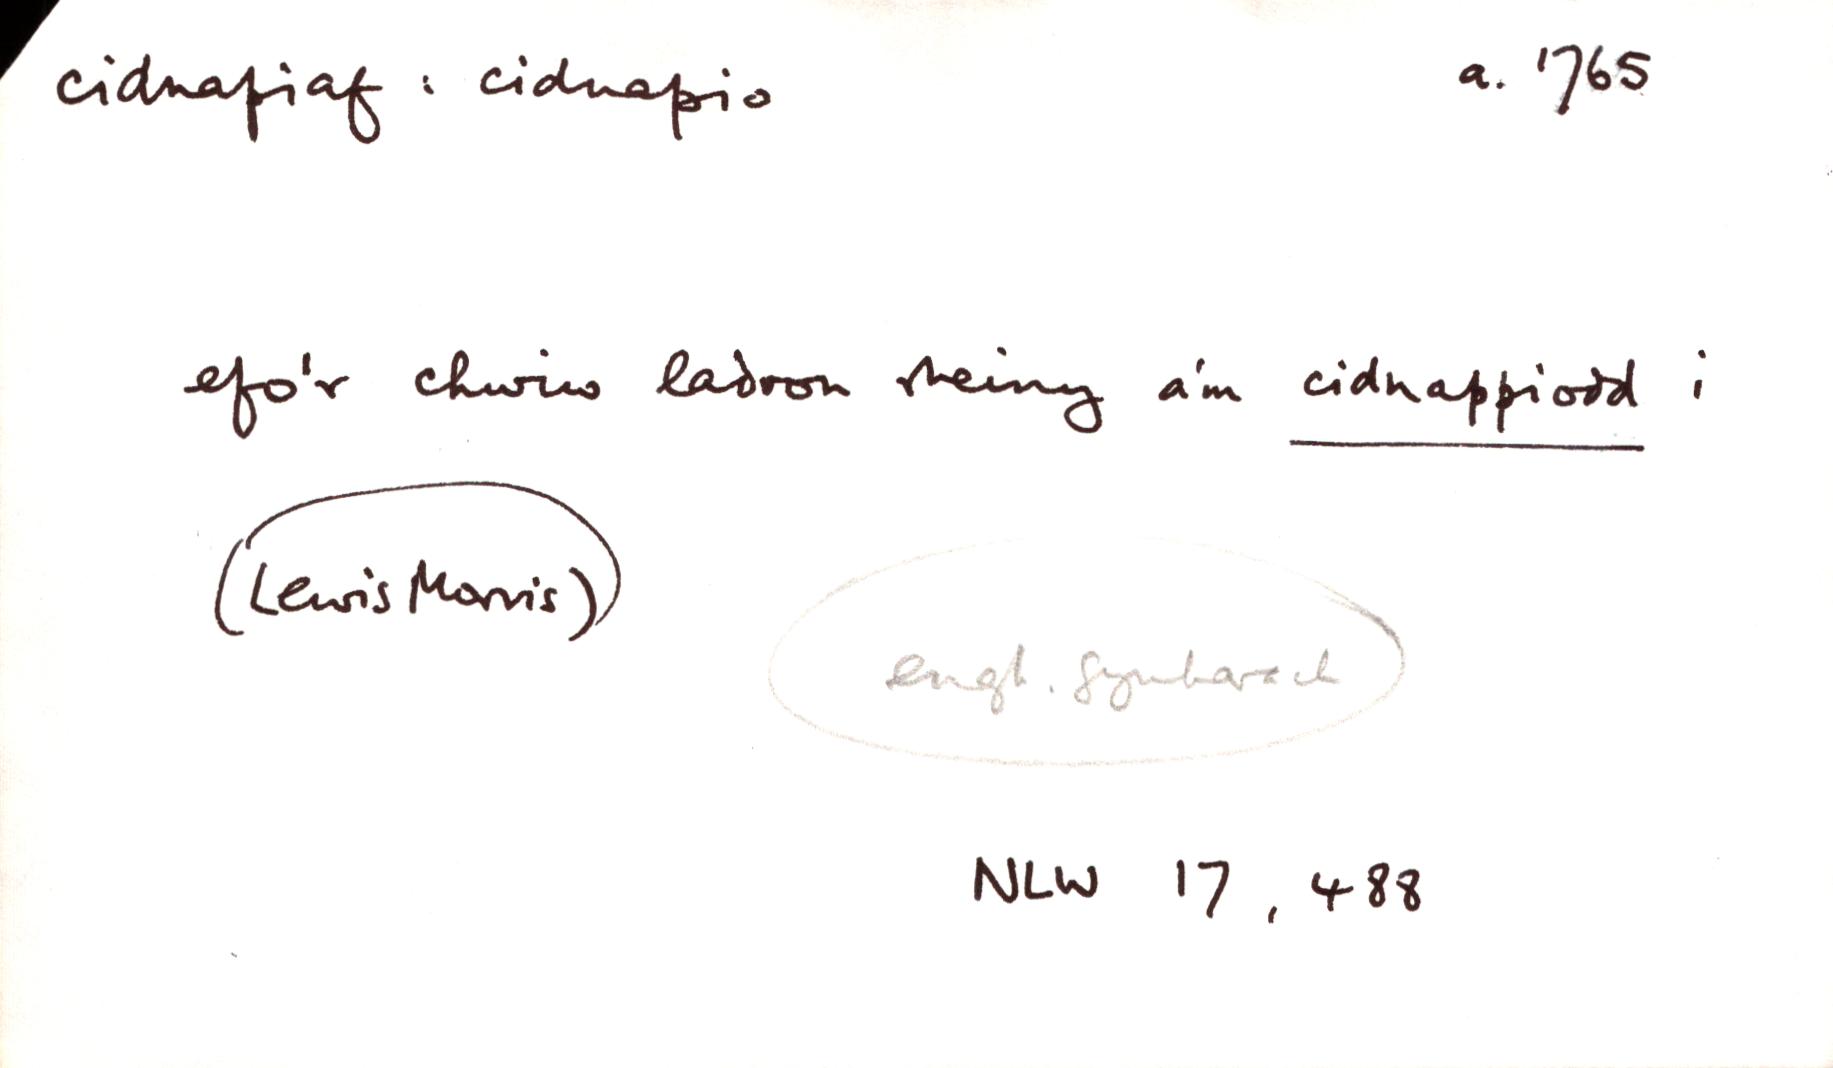 cidnapiaf : cidnapio a. 1765
efo'r chwiw ladron rheiny a'm cidnappiodd i
(Lewis Morris)
engh. gynharach
NLW 17, 488